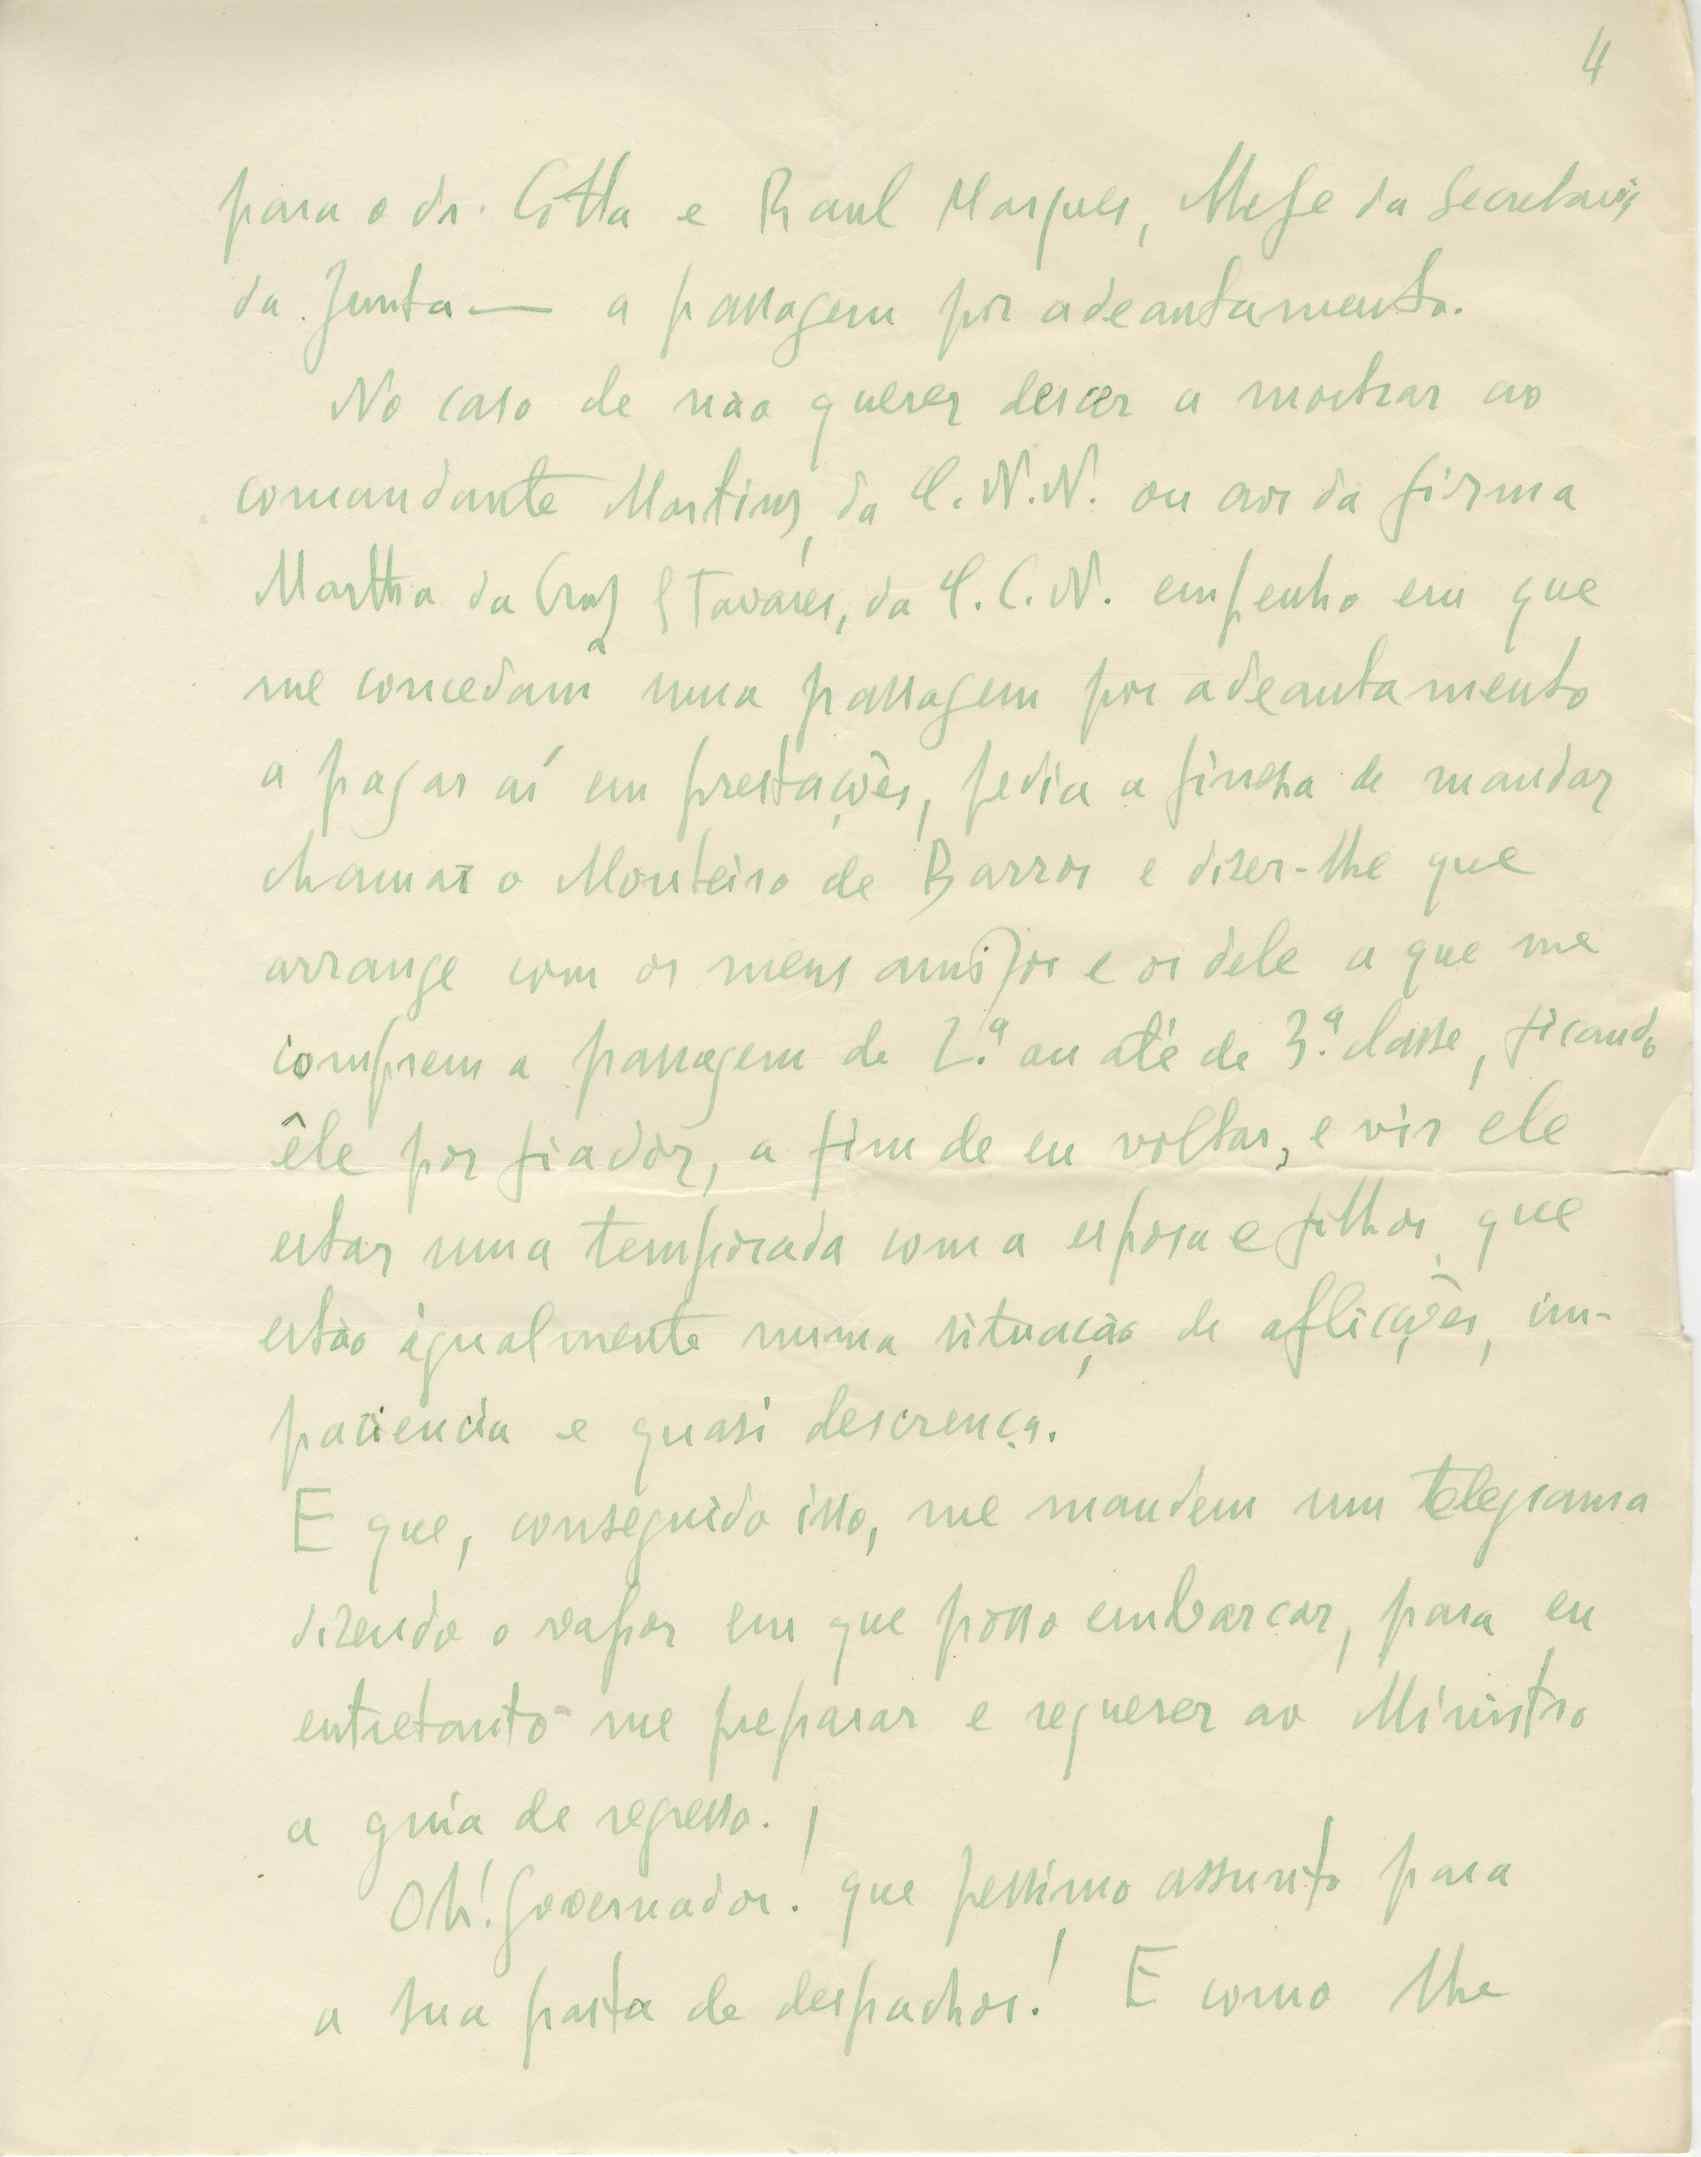 4
para o dr. Cotta e Raul Marques, Chefe da Secretaria
da Junta — a passagem por adeantamento.
No caso de não querer descer a mostrar ao
comandante Martins, da C.N.N. ou aos da firma
Martha da Cruz & Tavares, da C.C.N. empenho em que
me concedam uma passagem por adeantamento
a pagar aí em prestações, pedia a fineza de mandar
chamar o Monteiro de Barros e dizer-lhe que
arrange com os meus amigos e os dele a que me
comprem a passagem de 2.ª ou até de 3.ª classe, ficando
êle por fiador, a fim de eu voltar, e vir ele
estar uma temporada com a esposa e filhos, que
estão igualmente numa situação de aflicções, im-
paciencia e quasi descrença.
E que, conseguido isso, me mandem um telegrama
dizendo o vapor em que posso embarcar, para eu
entretanto me preparar e requerer ao Ministro
a guia de regresso.
Oh! Governador! que pessimo assunto para
a sua pasta de despachos! E como lhe